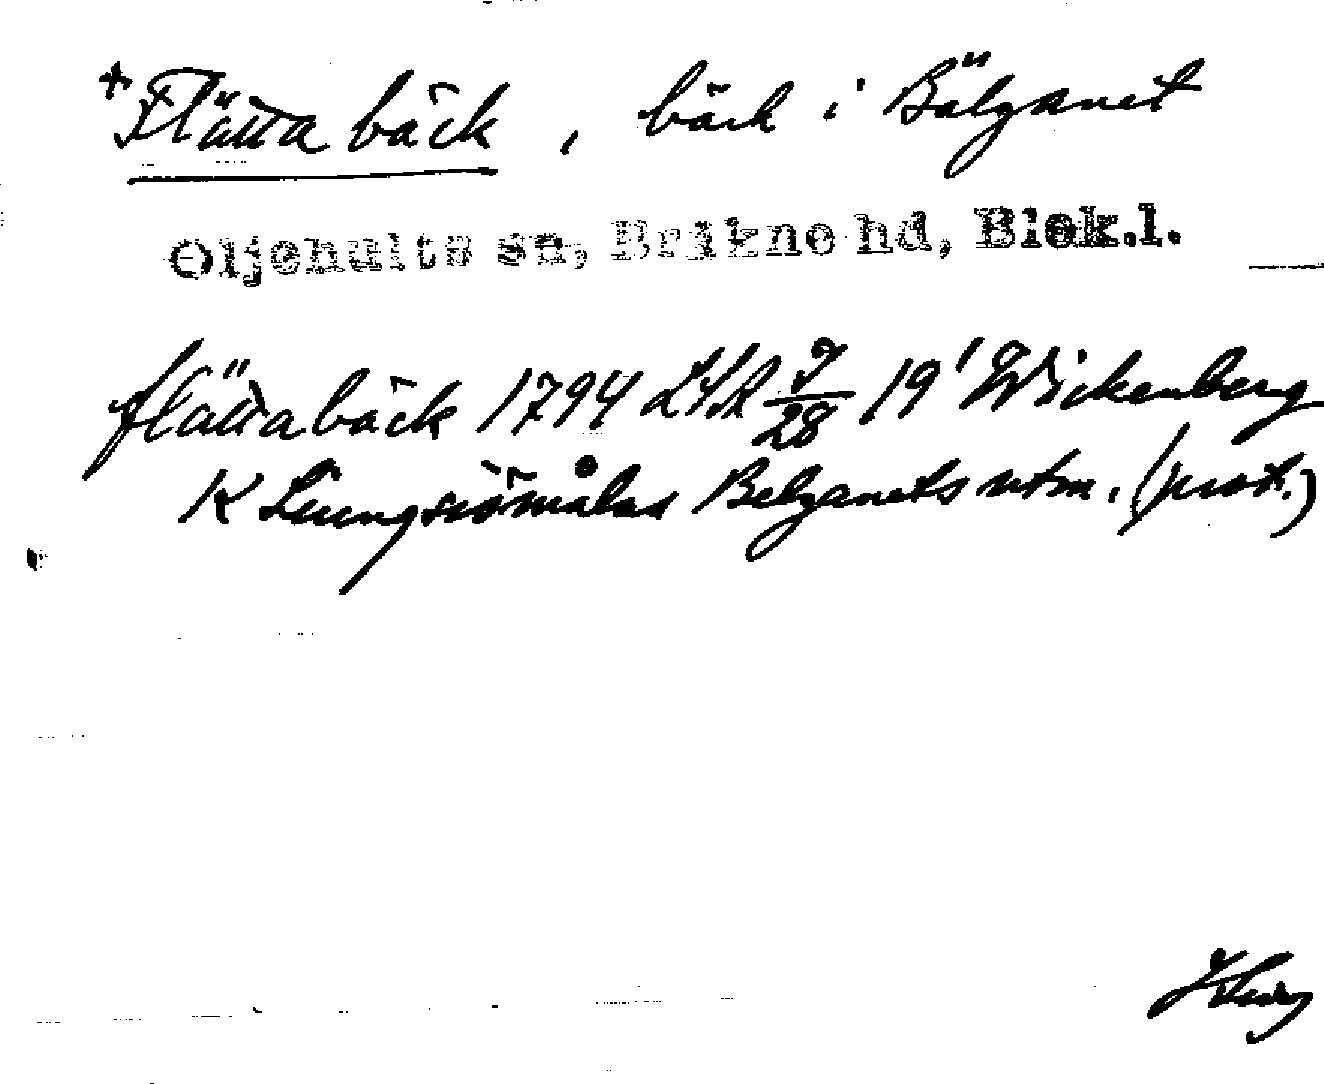 +Flätta bäck, bäck i Bälganet
Öljehults sn, Bräkne hd, Blek.l.
flättabäck 1794 LSA J/28 19¹ Wickenberg
K Liungsiömålas Belganets utm. (prot.)